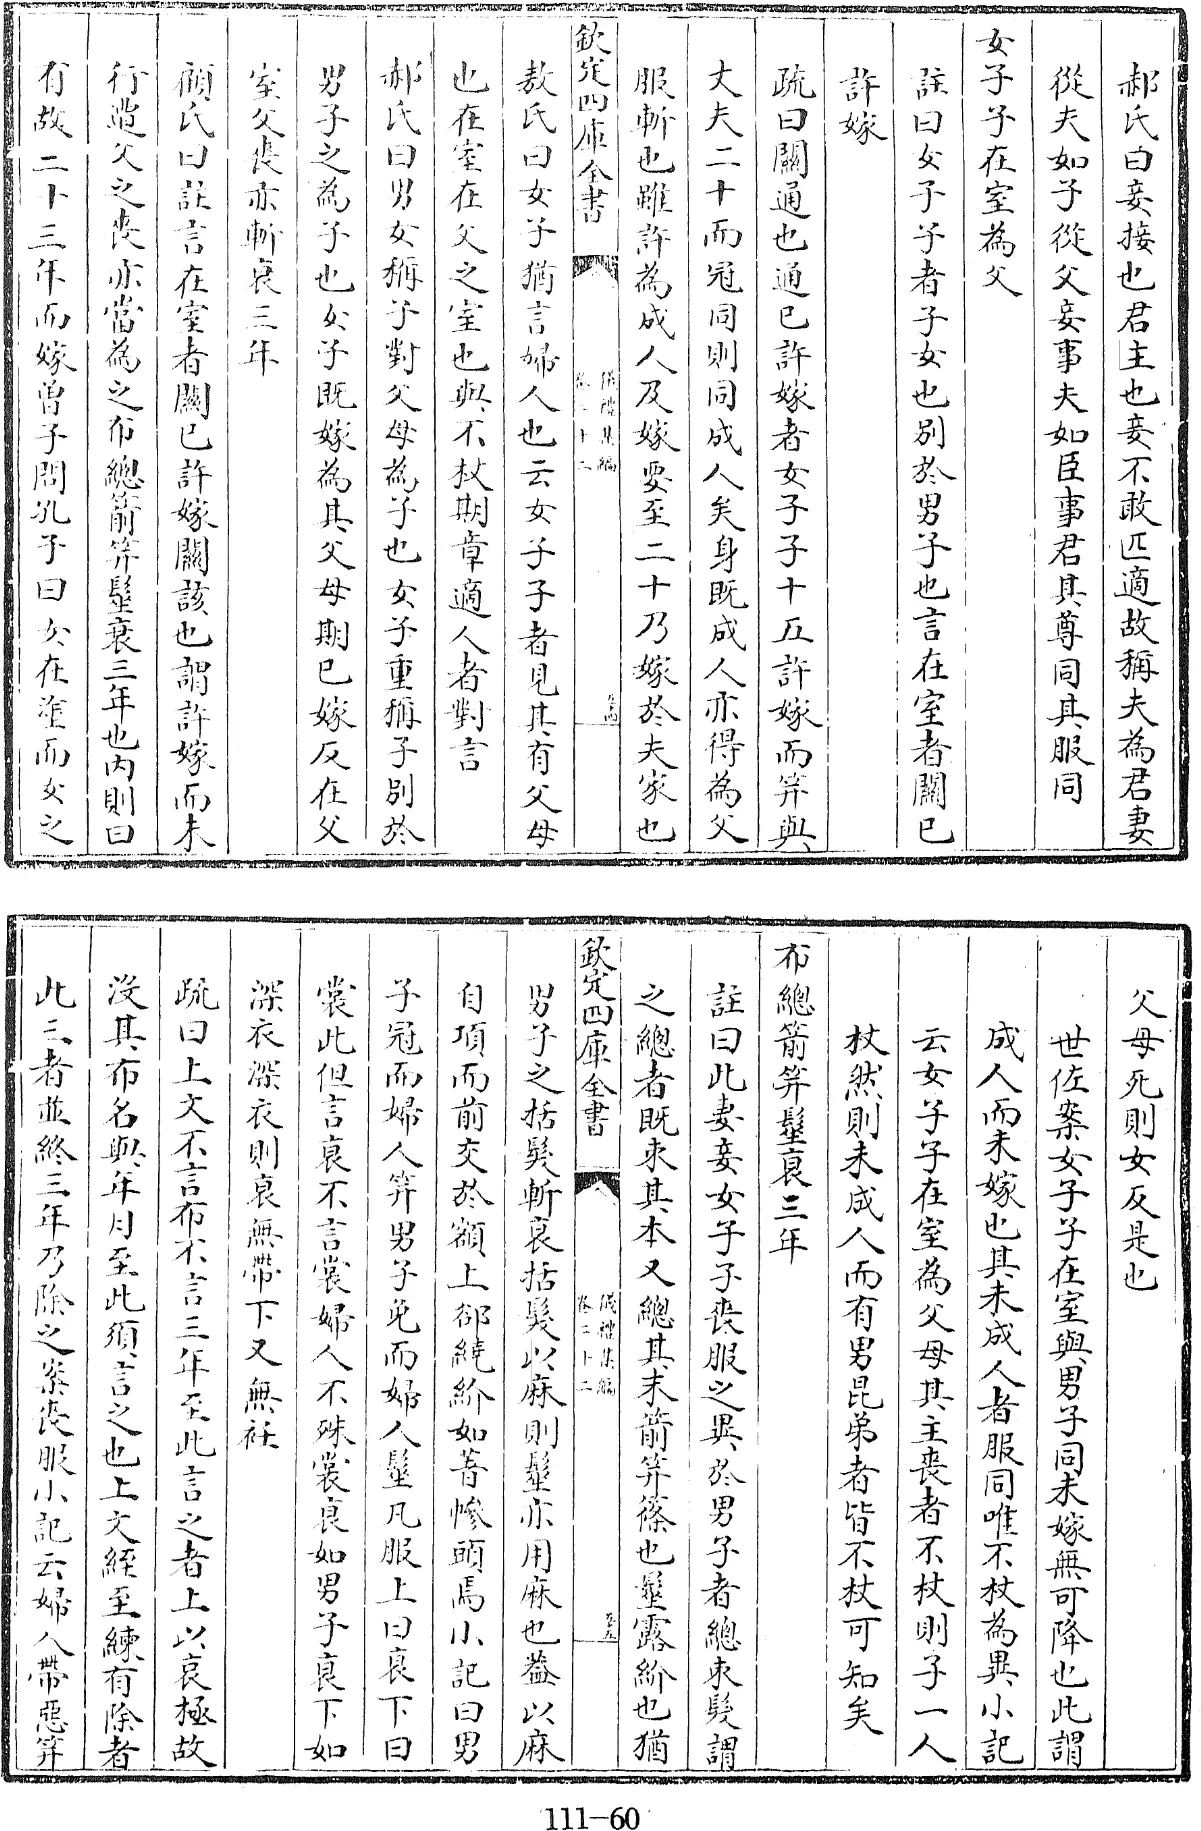 郝氏曰妾接也君主也妾不敢匹適故稱夫為君妻
從夫如子從父妾事夫如臣事君其尊同其服同
女子子在室為父
註曰女子子者子女也别於男子也言在室者關已
許嫁
疏曰關通也通已許嫁者女子子十五許嫁而笄與
丈夫二十而冠同則同成人矣身既成人亦得為父
服斬也雖許為成人及嫁要至二十乃嫁於夫家也
欽定四庫全書
儀禮集編
卷二十二
敖氏曰女子猶言婦人也云女子子者見其有父母
也在室在父之室也與不杖期章適人者對言
郝氏曰男女稱子對父母為子也女子重稱子别於
男子之為子也女子既嫁為其父母期已嫁反在父
室父喪亦斬衰三年
顧氏曰註言在室者關已許嫁關該也謂許嫁而未
行遭父之喪亦當為之布總箭笄髽衰三年也内則曰
有故二十三年而嫁曾子問孔子曰女在塗而女之
父母死則女反是也
世佐案女子子在室與男子同未嫁無可降也此謂
成人而未嫁也其未成人者服同唯不杖為異小記
云女子子在室為父母其主喪者不杖則子一人
杖然則未成人而有男昆弟者皆不杖可知矣
布總箭笄髽衰三年
註曰此妻妾女子子喪服之異於男子者總束髮謂
之總者既束其本又總其末箭笄篠也髽露紒也猶
欽定四庫全書
儀禮集編
卷二十二
男子之括髮斬衰括髮以麻則髽亦用麻也葢以麻
自項而前交於額上郤繞紒如著幓頭焉小記曰男
子冠而婦人笄男子免而婦人髽凡服上曰衰下曰
裳此但言衰不言裳婦人不殊裳衰如男子衰下如
深衣深衣則衰無帶下又無衽
疏曰上文不言布不言三年至此言之者上以哀極故
没其布名與年月至此須言之也上文絰至練有除者
此三者並終三年乃除之案喪服小記云婦人帶惡笄
111-60